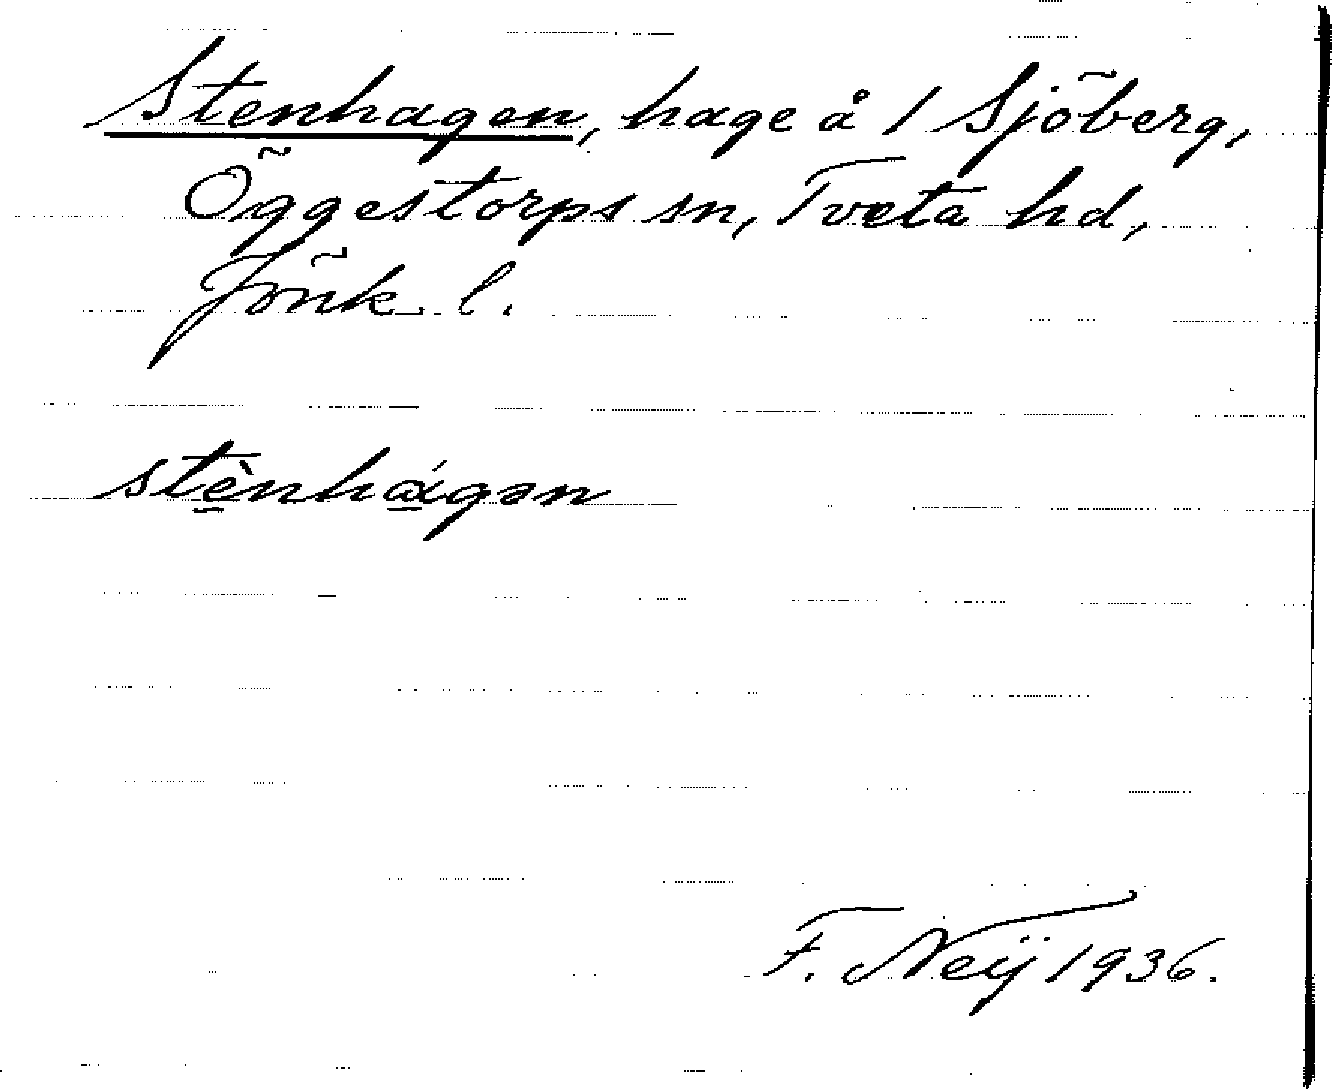 Stenhagen, hage å 1 Sjöberg,
Öggestorps sn, Tveta hd,
Jönk. l.
stè̠nhá̠gən
F. Neij 1936.